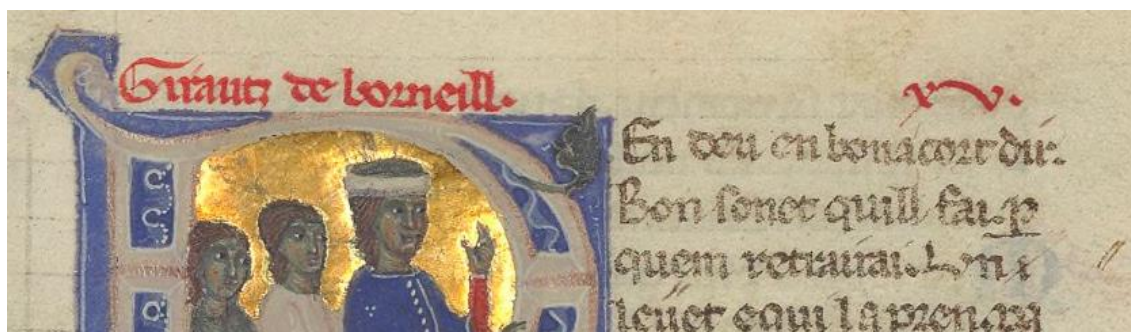 Girautz de borneill. xv.
En deu en bonacort dir.
Bon sonet quill fai. p
quem retrairai. Un
leuet equi la